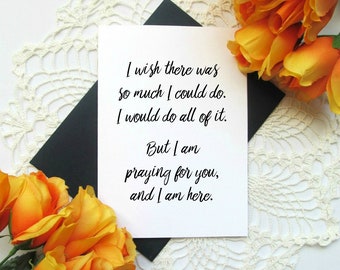 I wish there was
so much I could do.
I would do all of it.
But I am
praying for you,
and I am here.